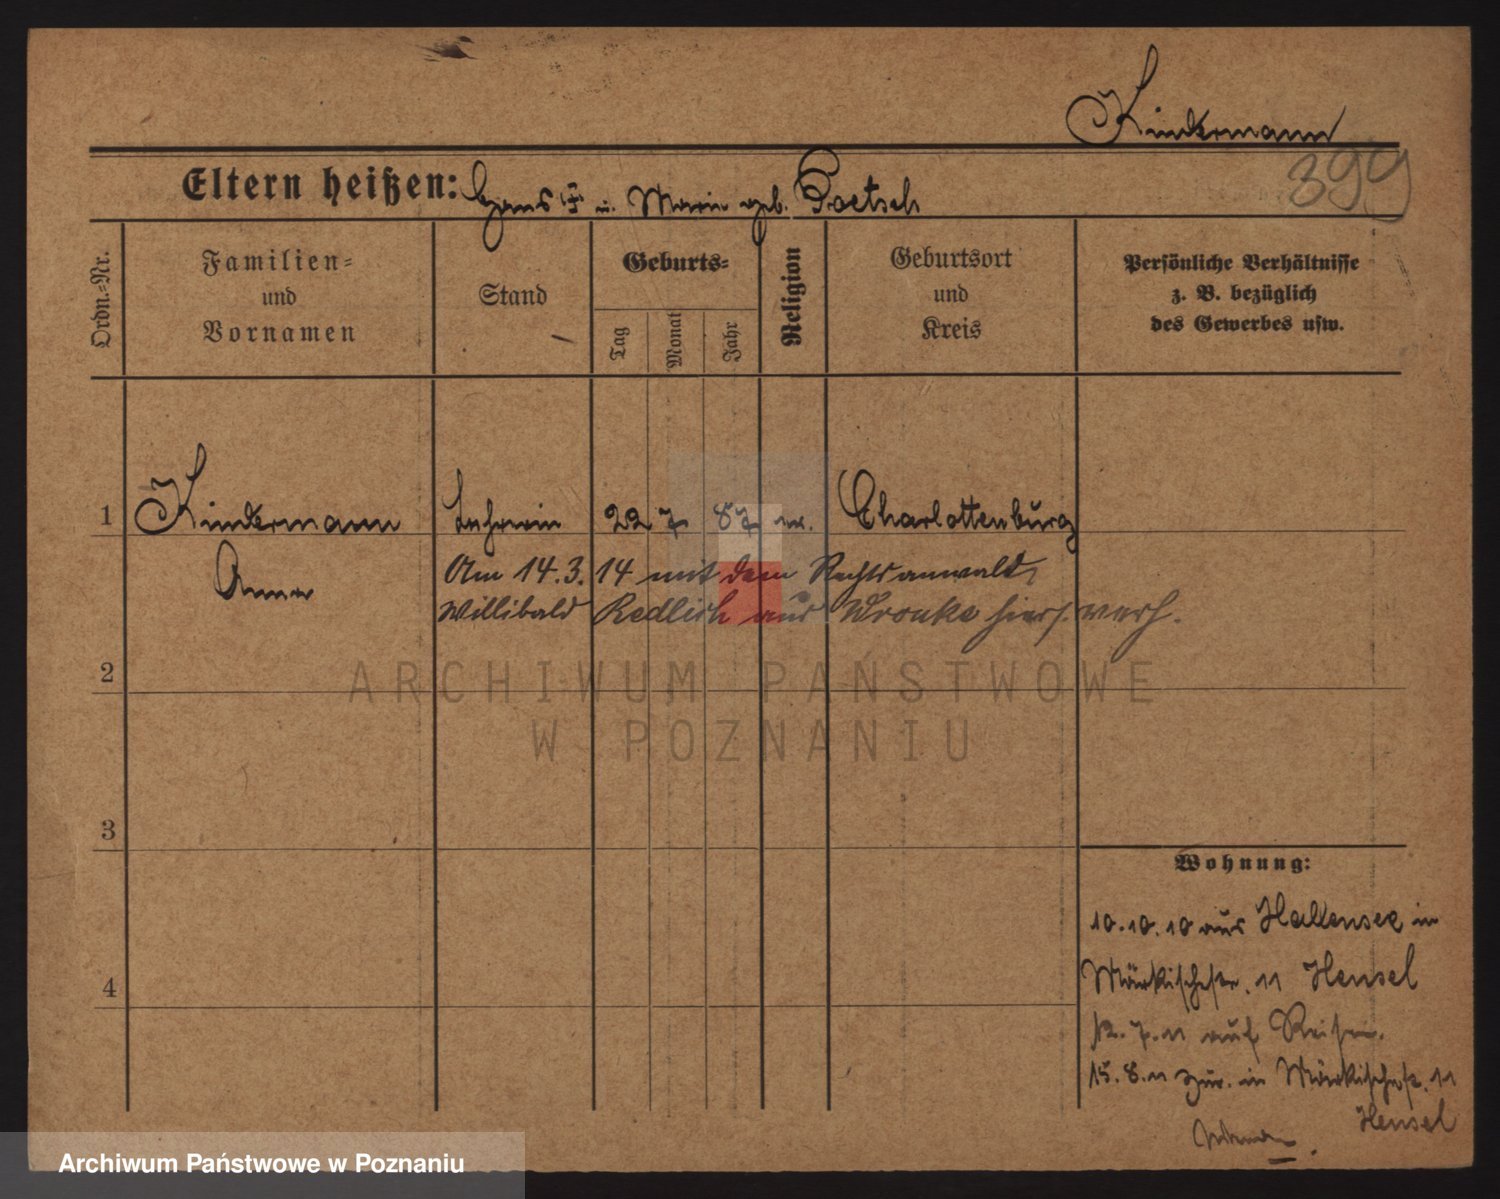 Kindermann
399
Eltern heißen: Hans u. Marie geb. Poetsch
Ordn.-Nr.
Familien- und Vornamen
Stand
Geburts-
Tag
Monat
Jahr
Religion
Geburtsort und Kreis
Persönliche Verhältnisse
z. B. bezüglich
des Gewerbes usw.
1 Kindermann Lehrerin 22 7 87 ev. Charlottenburg
Anna
Am 14.3.14 mit dem Rechtsanwalt
Willibald Redlich aus Wronke hier verh.
2
3
4
Wohnung:
10.10.10 aus Halensee in
Märkischestr. 11 Hensel
7.11 auf Reisen.
15.8.11 zur. in Märkischestr. 11
Hensel
ARCHIWUM PAŃSTWOWE
W POZNANIU
Archiwum Państwowe w Poznaniu